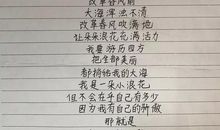 改革春风前
大海浑浊不清
改革春风吹满地
让朵朵浪花充满活力
我要游历四方
把全部美丽
都捎给我的大海
我是一朵小浪花
但不会在乎自己有多少
因为我有自己的骄傲
那就是